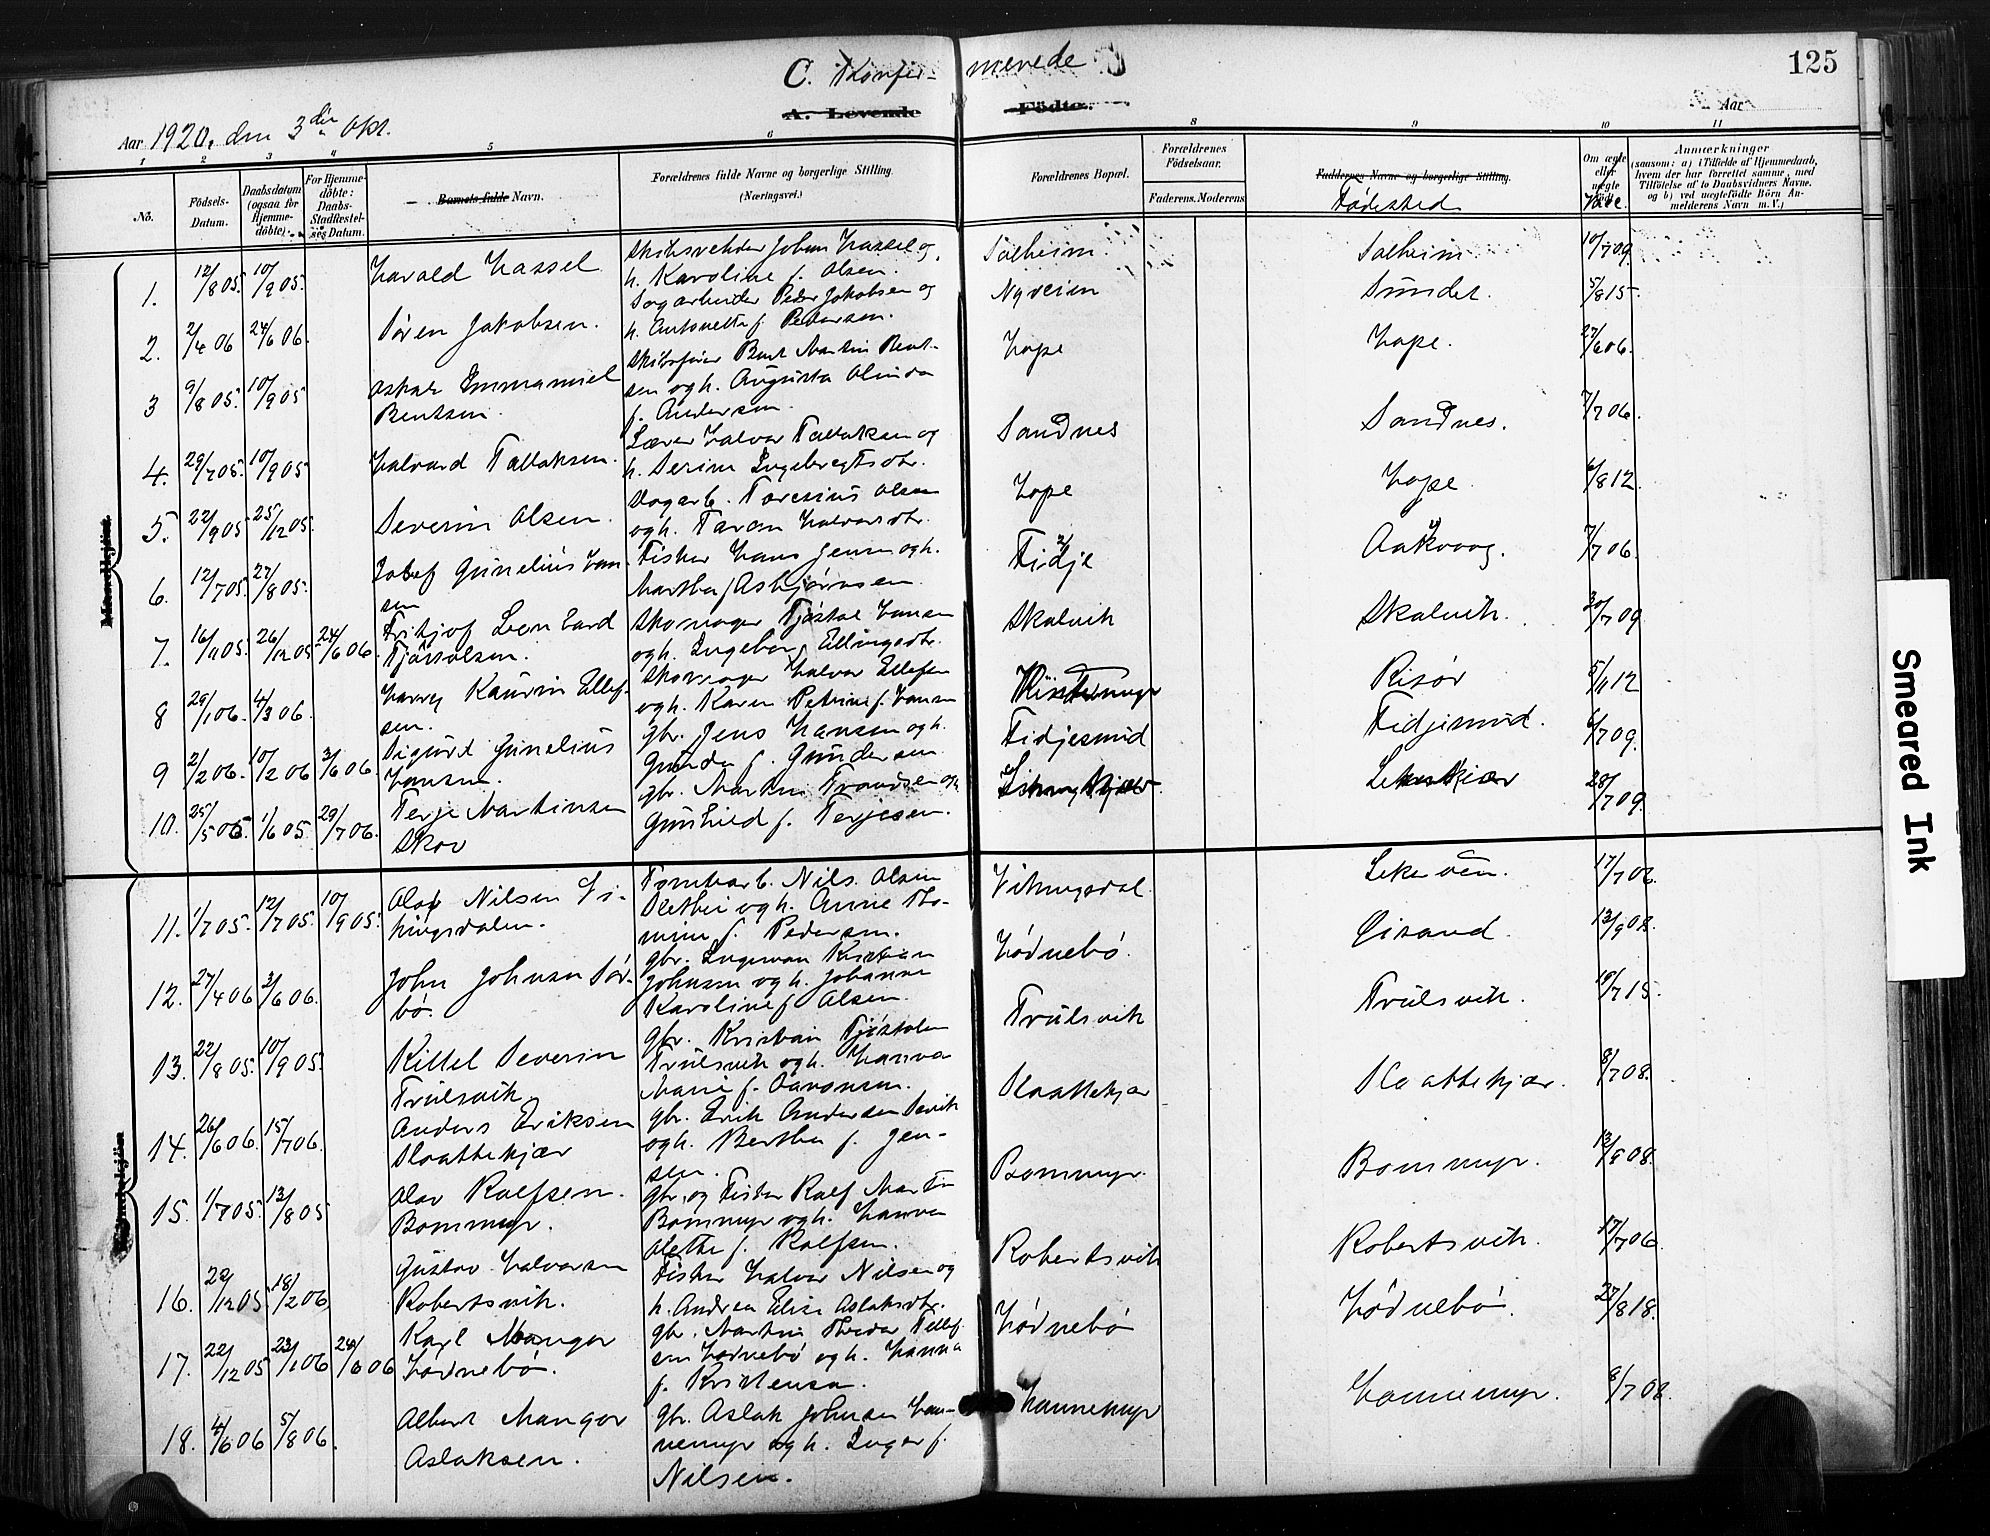 C. Konfir- merede
A. Levende Födte.
125
Aar 1920, den 3die Okt.
Aar
1 2 3 4 5 6 8 9 10 11
No.
Födsels-Datum.
Daabsdatum (ogsaa for Hjemme-döbte).
For Hjemme-döbte: Daabs-Stadfæstel-ses Datum.
Barnets fulde Navn.
Forældrenes fulde Navne og borgerlige Stilling.
(Næringsvei.)
Forældrenes Bopæl.
Forældrenes Födselsaar.
Faderens. Moderens.
Faddernes Navne og borgerlige Stilling.
Fødested
Om ægte eller uægte født.
Vacc.
Anmærkninger
(saasom: a) i Tilfælde af Hjemmedaab, hvem der har forrettet samme, med Tilföielse af to Daabsvidners Navne. og b) ved uægtefödte Börn Anmelderens Navn m. V.)
Mandkjön
Kvindekjön
1. 12/8 05. 10/9 05. Harald Hassel Skibsreder Johan Hassel og h. Karoline f. Olsen. Solheim. Solheim 10/7 09.
2. 2/4 06 24/6 06. Søren Jakobsen. Sagarbeider Peder Jakobsen og h. Antonette f. Pedersen. Nyveien Sundet. 5/8 15.
3 9/8 05. 10/9 05 Oskar Immanuel Bentsen. Skibsfører Bent Martin Bentsen og h. Augusta Olinda f. Andersen. Hope Hope. 27/6 06.
4. 29/7 05. 10/9 05 Halvard Tallaksen. Lærer Halvor Tallaksen og h. Serine Ingebregtsdtr. Sandnes Sandnes. 7/7 06.
5. 22/9 05 25/12 05. Severin Olsen. Dagarb. Toresius Olsen og h. Taran Halvorsdtr. Hope Hope. 6/8 12
6. 12/7 05. 27/8 05. Josef Gunelius Hansen Fisker Hans Jensen og h. Martha f. Asbjørnsen. Fidje Aakvaag. 7/7 06.
7. 16/11 05. 26/12 05. 24/6 06. Fritjof Leonhard Tjøstolsen. Skomager Tjøstol Hansen og h. Ingeborg Ellingsdtr. Skalvik Skalvik. 30/7 09
8 29/1 06. 4/3 06. Harry Kaurin Ellefsen. Skomager Halvor Ellefsen og h. Karen Petrine f. Hansen Risør 5/11 12
9 2/2 06. 10/2 06 3/6 06. Sigurd Gunelius Hansen. gbr. Jens Hansen og h. Gunda f. Gundersen. Fidjesund Fidjesund. 6/7 09.
10. 25/5 05. 1/6 05. 29/7 06. Terje Martinsen Skov gbr. Martin Trondsen og Gunhild f. Terjesen. 28/7 09.
11. 1/7 05. 12/7 05. 10/9 05. Olaf Nilsen Vikingsdalen. Tomtearb. Nils Olsen og h. Anne Thomine f. Pedersen. Vikingsdal. 17/7 06.
12. 27/4 06 3/6 06. John Johnsen Sørbø. gbr. Ingeman Kristian Johnsen og h. Johanne Karoline f. Olsen. Hødnebø. Øisand. 13/9 08.
13. 22/8 05. 10/9 05. Kittel Severin Trulsvik gbr. Kristian Tjøstolsen Trulsvik og h. Hanna Marie f. Aanonsen. Trulsvik Trulsvik. 19/7 15.
14. 26/6 06. 15/7 06. Anders Eriksen Slaattekjær gbr. Erik Andersen og h. Berthe f. Jensen. Slaattekjær Slaattekjær. 8/7 08.
15. 1/7 05. 13/8 05 Olav Rolfsen Bommyr. gbr. og Fisker Rolf Martin Bommyr og h. Hanna Olette f. Rolfsen. Bommyr. Bommyr. 13/9 08.
16. 22/12 05. 18/2 06. Gustav Halvorsen Robertsvik. Fisker Halvor Nilsen og h. Andrea Elise Aslaksdtr. Robertsvik Robertsvik. 17/7 06.
17. 22/12 05 23/1 06 24/6 06 Karl Mangor Hødnebø. gbr. Martin Thedor Tellefsen Hødnebø og h. Hanna f. Kristensen. Hødnebø Hødnebø. 27/8 18.
18. 4/6 06 5/8 06. Albert Mangor Aslaksen. gbr. Aslak Johnsen Hannemyr og h. Inger f. Nilsen. Hannemyr Hannemyr. 8/7 08.
Smeared Ink